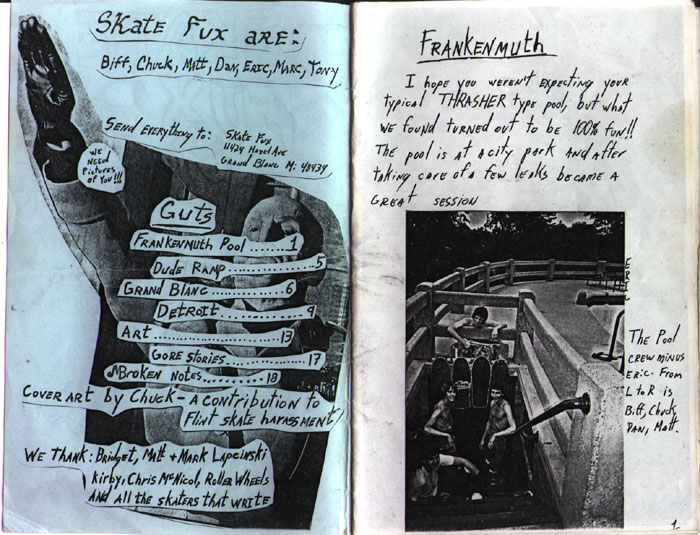 Skate Fux are:
Biff, Chuck, Matt, Dan, Eric, Marc, Tony
Send everything to: Skate Fux
11424 Hazel Ave
Grand Blanc Mi 48439
We
need
Pictures
of You!!!
Guts
Frankenmuth Pool..........1
Dude Ramp...............5
Grand Blanc...............6
Detroit..................9
Art.....................13
Gore Stories.............17
Broken Notes.............18
Cover art by Chuck - A contribution to
Flint skate harassment!
We Thank: Bridget, Matt + Mark Lapcinski
Kirby, Chris McNicol, Roller Wheels
and all the skaters that write
Frankenmuth
I hope you weren't expecting your
typical THRASHER type pool, but what
we found turned out to be 100% fun!!
The pool is at a city park and after
taking care of a few leaks became a
great session
The Pool
crew minus
Eric. From
L to R is
Biff, Chuck,
Dan, Matt.
1